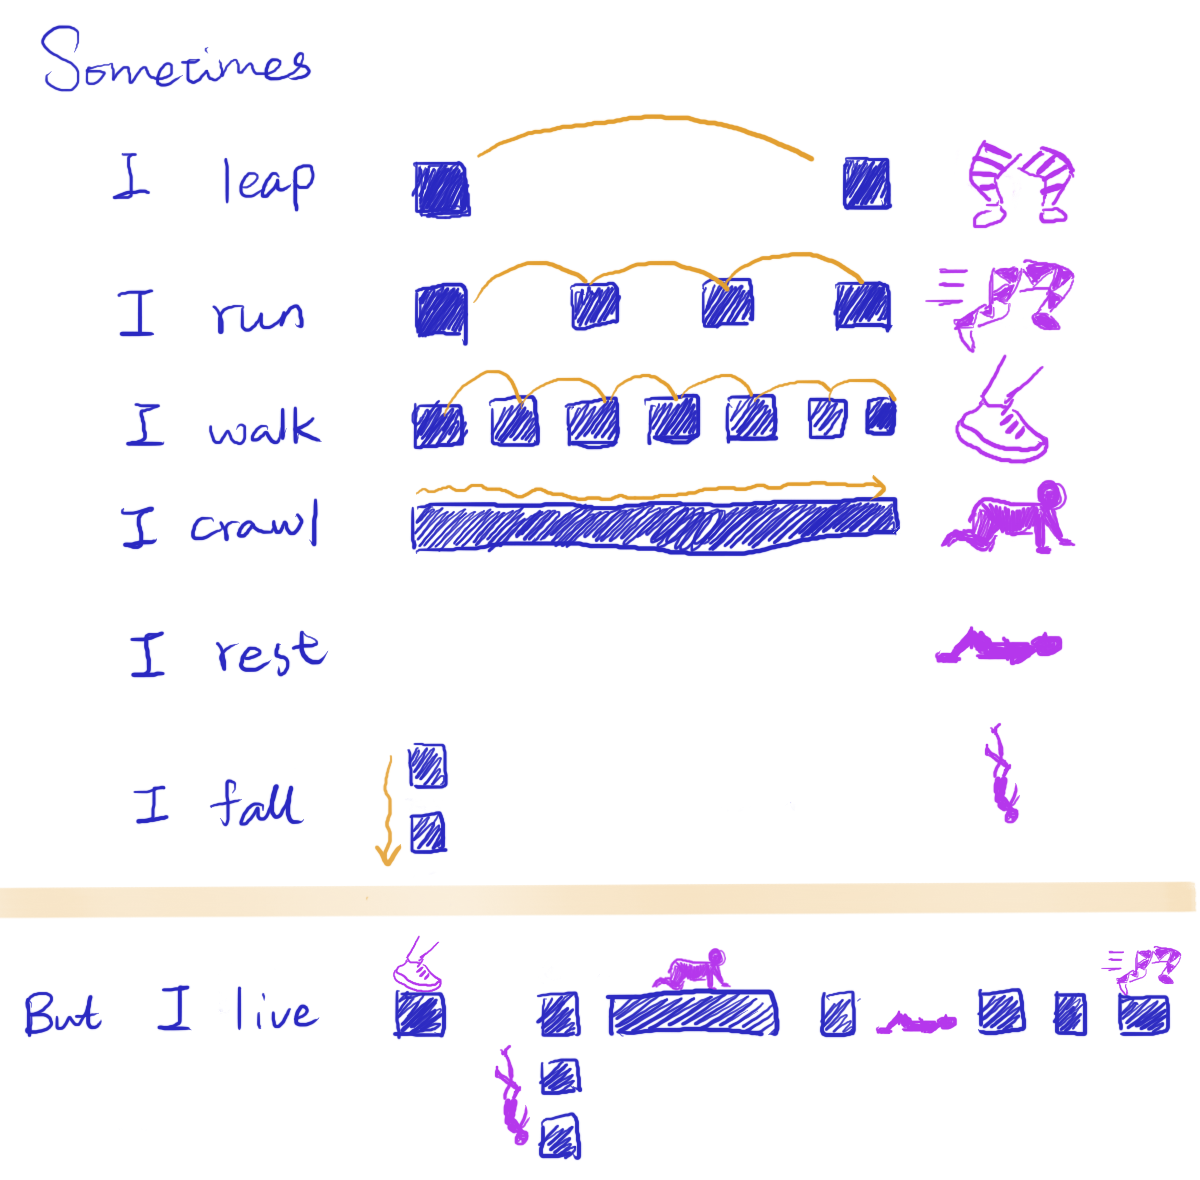 Sometimes
I leap
I run
I walk
I crawl
I rest
I fall
But I live